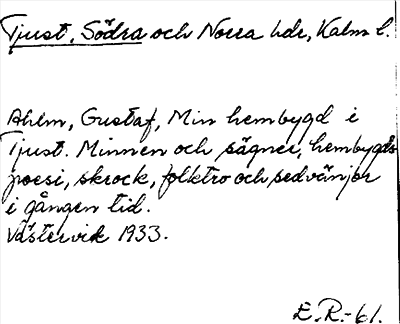 Tjust, Södra och Norra hdr, Kalm l.
Ahlm, Gustaf, Min hembygd i
Tjust. Minnen och sägner, hembygds
poesi, skrock, folktro och sedvänjor
i gången tid.
Västervik 1933.
E.R.-61.